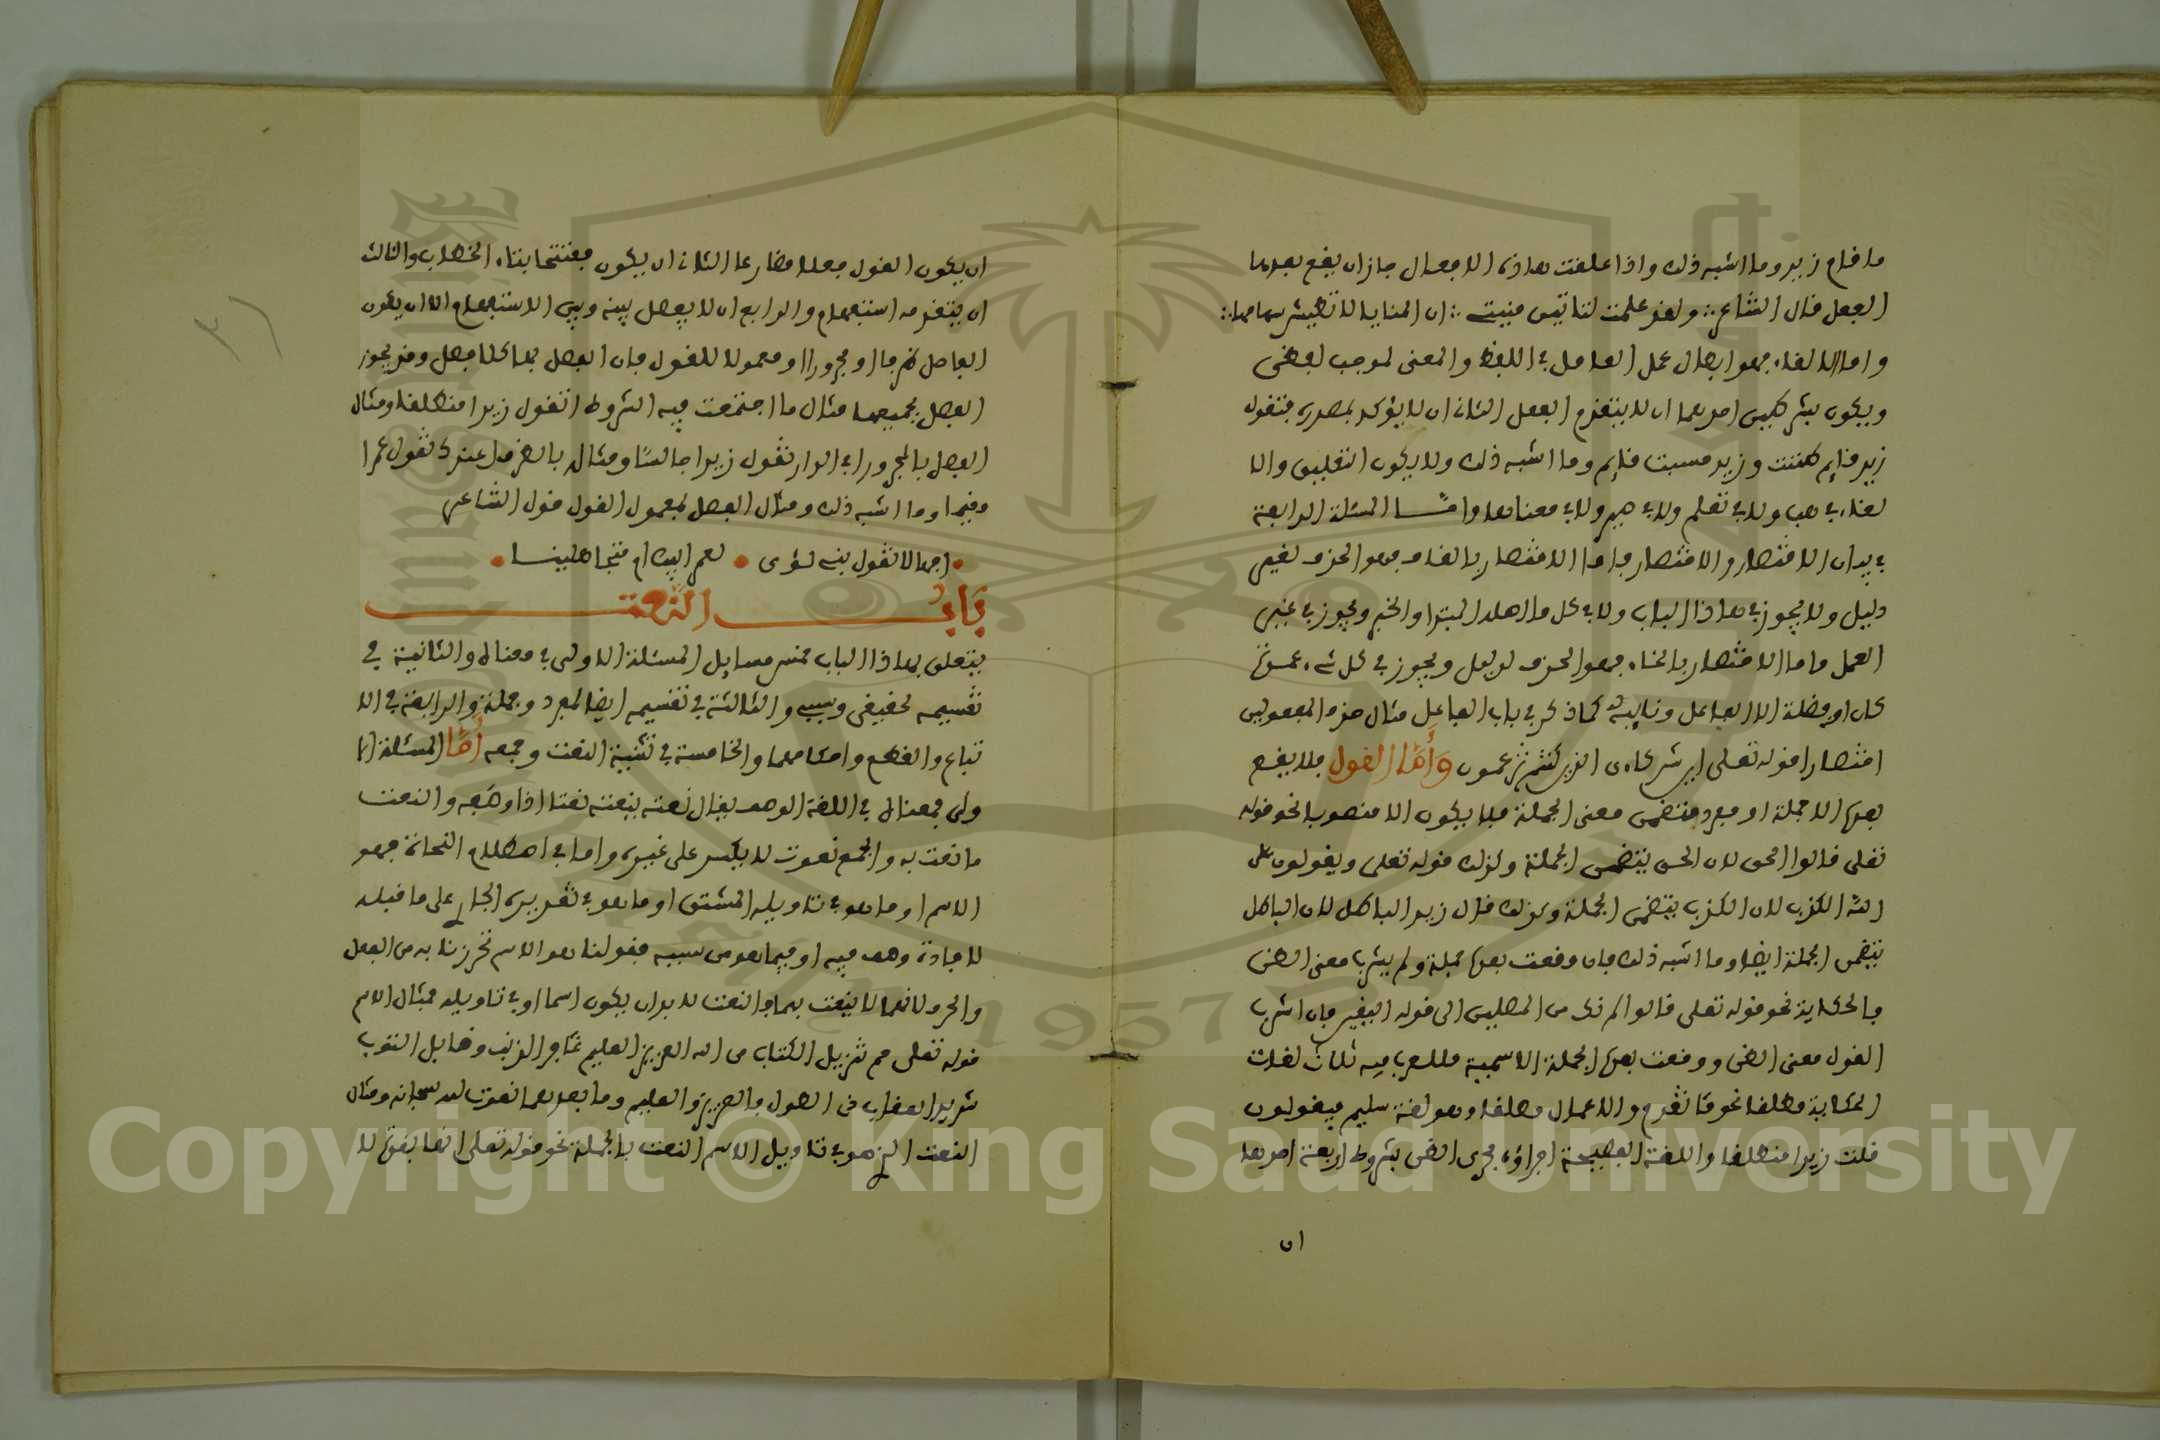 ما قام زيد وما اشبه ذلك واذا علقت هاذه الافعال جاز ان يقع بعدها
الفعل قال الشاعر ولقد علمت لتاتين منيتي ان المنايا لا تطيش سهامها
واما الالغاء فهو ابطال عمل العامل في اللفظ والمعنى لموجب لفظي
ويكون بشرطين احدهما ان لا يتقدم الفعل الثاني ان لا يؤكد بمصدره فتقول
زيد قايم ظننت وزيد حسبت قايم وما اشبه ذلك ولا يكون التعليق والا
لغاء في هب ولا في تعلم ولا في صير ولا في معناها واما المسئلة الرابعة
في بيان الاقتصار والاختصار فاما الاقتصار بالقاف فهو الحذف لغير
دليل ولا يجوز في هاذا الباب ولا في كل ما اصله المبتدا والخبر ويجوز في غير
العمل واما الاختصار بالخاء فهو الحذف لدليل ويجوز في كل شيء عمدة
كان او فضلة الا الفاعل ونايبه كما ذكر في باب الفاعل مثال حذف المفعولين
اختصارا قوله تعلى اين شركاءي الذين كنتم تزعمون وأما القول فلا يقع
بعده الا جملة او مفرد متضمن معنى الجملة فلا يكون الا منصوبا نحو قوله
تعلى قالوا الحق لان الحق يتضمن الجملة وكذلك قوله تعلى ويقولون على
الله الكذب لان الكذب يتضمن الجملة وكذلك قال زيد الباطل لان الباطل
يتضمن الجملة ايضا وما اشبه ذلك فان وقعت بعده جملة ولم يشرب معنى الظن
فالحكاية نحو قوله تعلى قالوا لم نك من المصلين الى قوله اليقين فان اشرب
القول معنى الظن ووقعت بعده الجملة الاسمية فللعرب فيه ثلاث لغات
الحكاية مطلقا نحو ما تقدم والاعمال مطلقا وهو لغة سليم فيقولون
قلت زيدا منطلقا واللغة الفصيحة اجراؤه مجرى الظن بشروط اربعة احدها
ان
ان يكون القول فعلا مضارعا الثاني ان يكون مفتتحا بتاء الخطاب والثالث
ان يتقدمه استفهام والرابع ان لا يفصل بينه وبين الاستفهام الا ان يكون
الفاصل ظرفا او مجرورا او معمولا للقول فان الفصل بها كلا فصل وقد يجوز
الفصل بجميعها مثال ما اجتمعت فيه الشروط اتقول زيدا منطلقا ومثال
الفصل بالمجرور افي الدار تقول زيدا جالسا ومثاله بالظرف اعندك تقول عمرا
مقيما وما اشبه ذلك ومثال الفصل بمعمول القول قول الشاعر
اجهالا تقول بني لؤي • لعمر ابيك ام متجاهلينا •
باب النعت
يتعلق بهاذا الباب خمس مسايل المسئلة الاولى في معناه والثانية في
تقسيمه لحقيقي وسببي والثالثة في تقسيمه ايضا لمفرد وجملة والرابعة في الا
تباع والقطع واحكامهما والخامسة في تثنية النعت وجمعه أما المسئلة الا
ولى فمعناه في اللغة الوصف يقال نعته ينعته نعتا اذا وصفه والنعت
ما نعت به والجمع نعوت لا يكسر على غيره واما في اصطلاح النحاة فهو
الاسم او ما هو في تاويله المشتق او ما هو في تقديره الجار على ما قبله
لافادة وصف فيه او فيما هو من سببه فقولنا هو الاسم تحرزنا به من الفعل
والحرف لانهما لا ينعت بهما والنعت لا بد ان يكون اسما او في تاويله فمثال الاسم
قوله تعلى حم تنزيل الكتاب من الله العزيز العليم غافر الذنب وقابل التوب
شديد العقاب ذي الطول فالعزيز والعليم وما بعدهما نعوت لله سبحانه ومثال
النعت الذي هو في تاويل الاسم النعت بالجملة نحو قوله تعلى انها بقرة لا